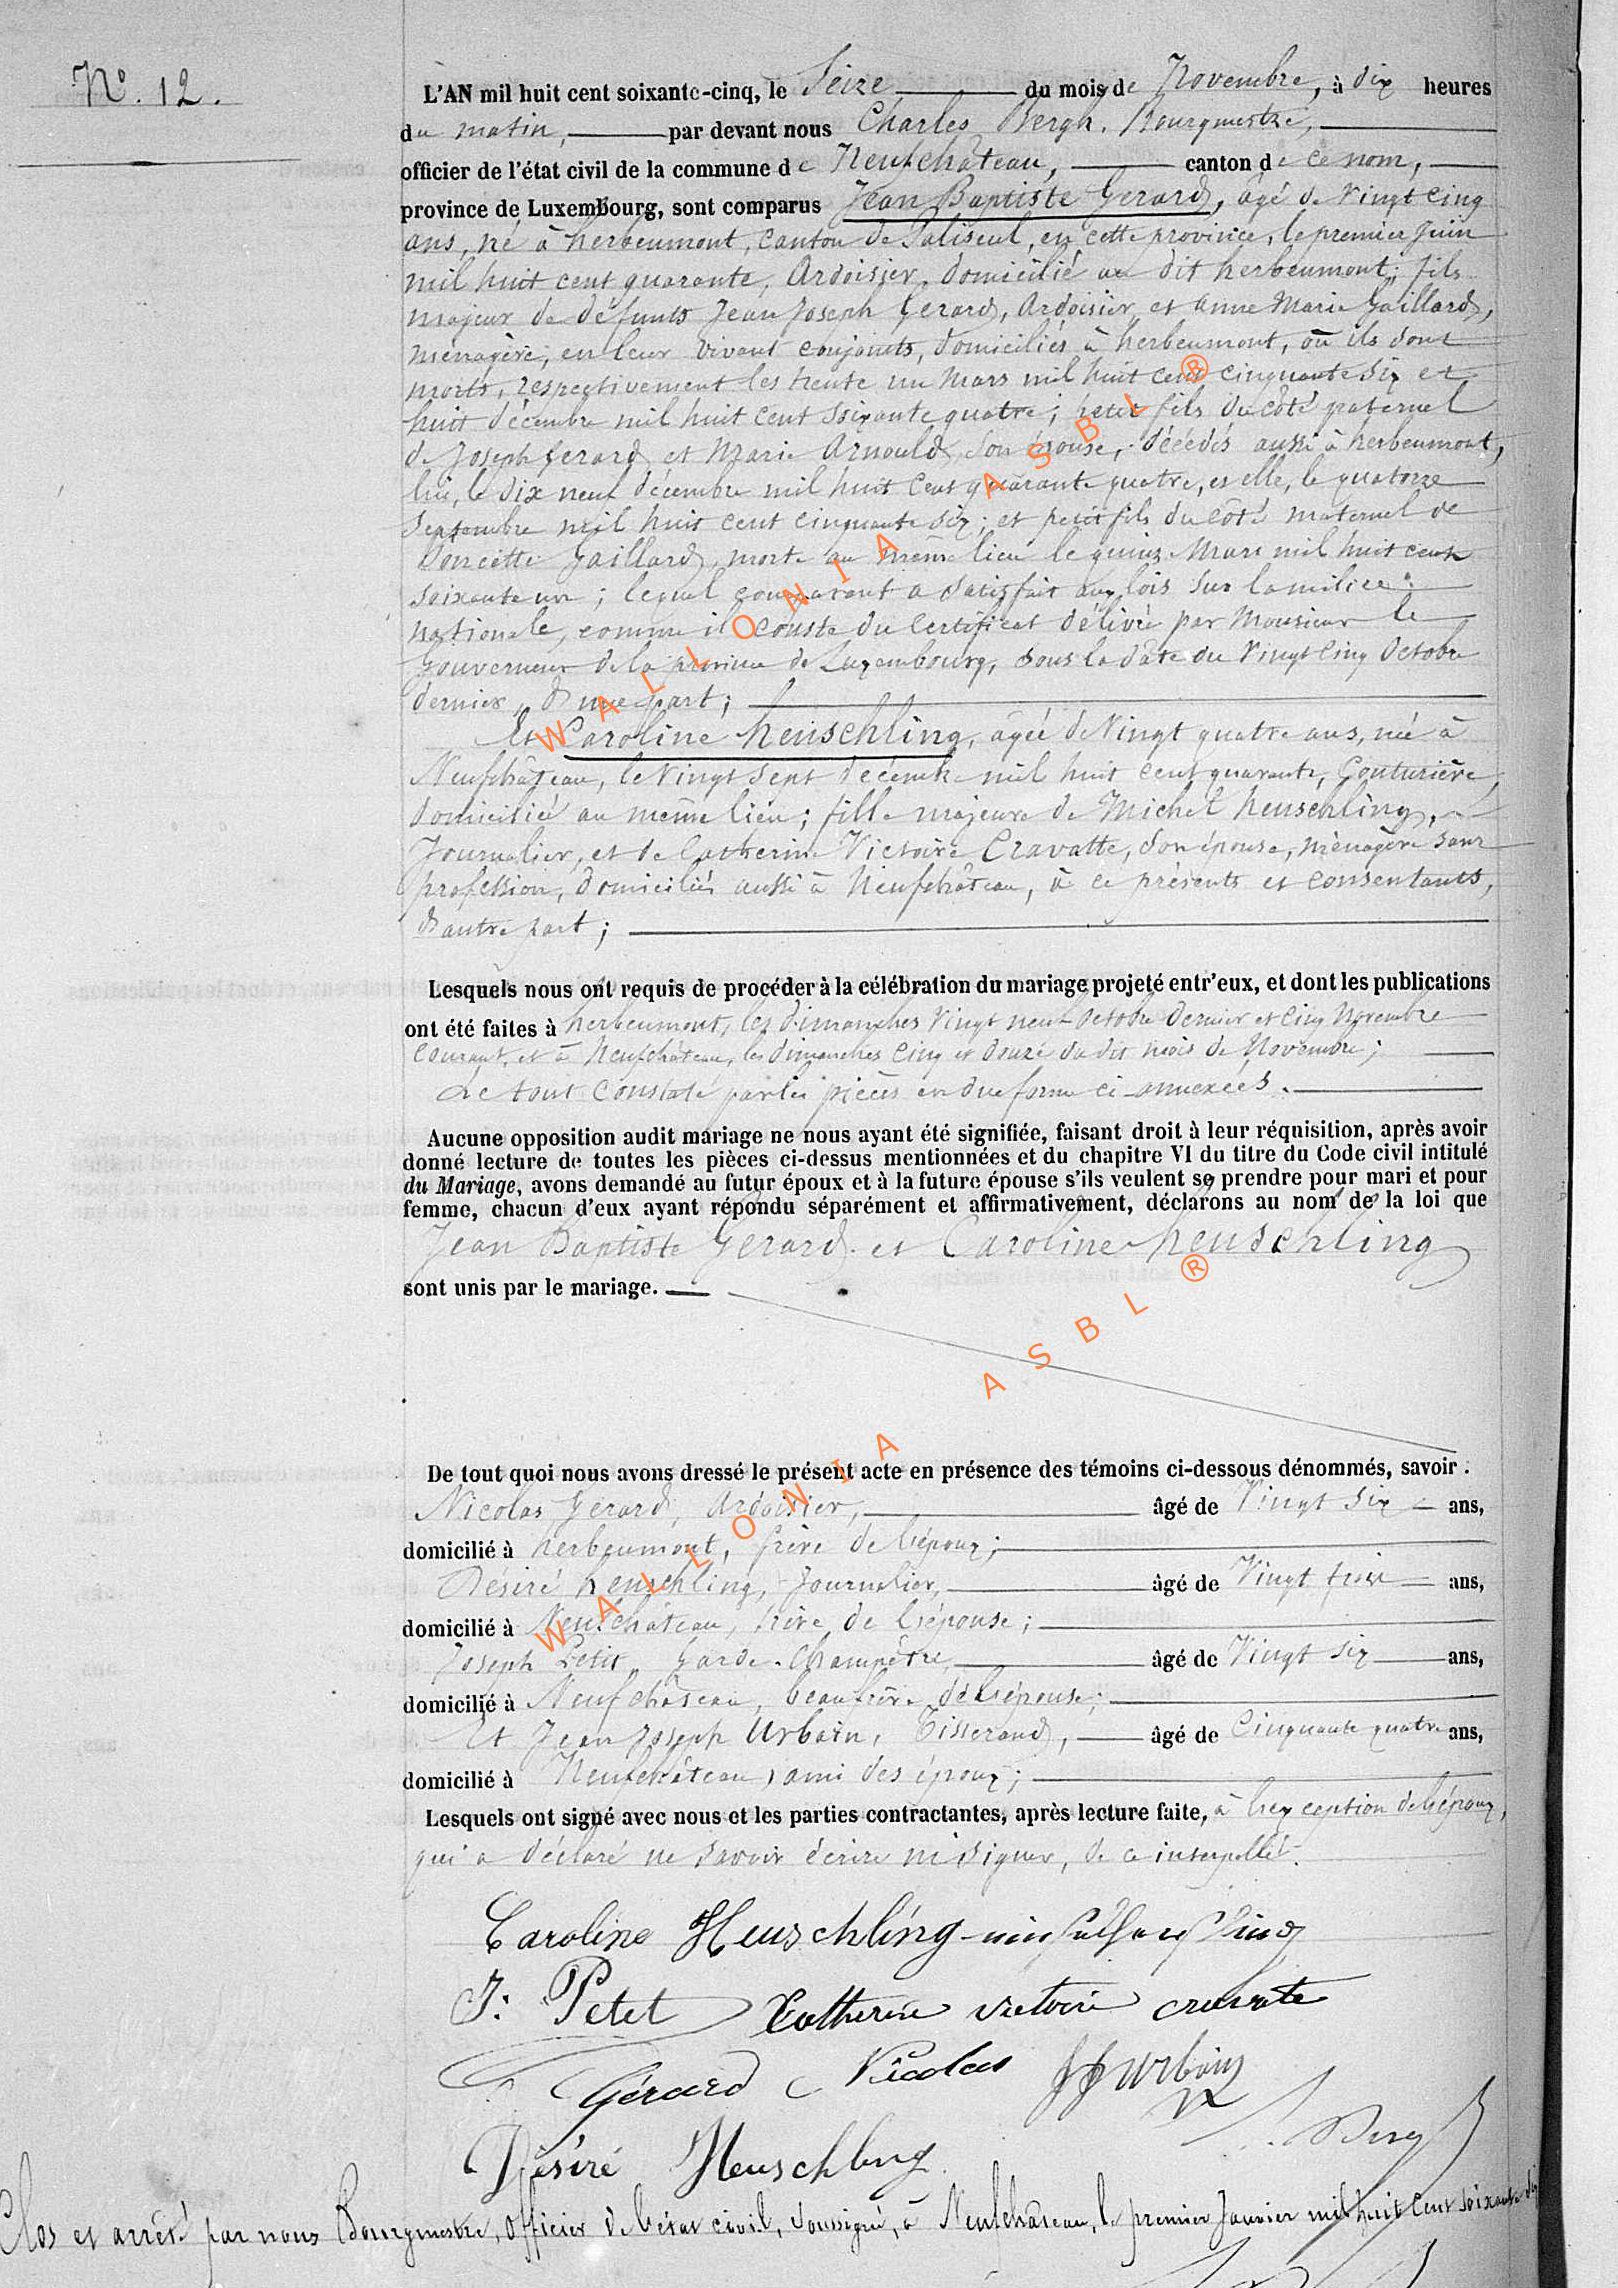 N° 12.
L'AN mil huit cent soixante-cinq, le Seize du mois de Novembre, à dix heures
du matin, par devant nous Charles Bergh, Bourgmestre,
officier de l'état civil de la commune de Neufchâteau, canton de ce nom,
province de Luxembourg, sont comparus Jean Baptiste Gerard, âgé de Vingt cinq
ans, né à herbeumont, canton de Paliseul, en cette province, le premier Juin
mil huit cent quarante, Ardoisier, domicilié au dit herbeumont; fils
majeur de défunts Jean Joseph Gerard, Ardoisier, et Anne Marie Gaillard,
ménagère, en leur vivant conjoints, domiciliés à herbeumont, où ils sont
morts, respectivement les trente un Mars mil huit cent cinquante six et
huit décembre mil huit cent soixante quatre; petit fils du côté paternel
de Joseph Gerard et Marie Arnould, son épouse, décédés aussi à herbeumont,
lui, le dix neuf décembre mil huit cent quarante quatre, et elle, le quatorze
Septembre mil huit cent cinquante six; et petit fils du côté maternel de
Gaillard, morte au même lieu le quinze Mars mil huit cent
soixante un; lequel comparant a satisfait aux lois sur la milice
nationale, comme il conste du Certificat délivré par Monsieur le
Gouverneur de la province de Luxembourg, sous la date du Vingt Cinq Octobre
dernier, d'une part;
Et Caroline heuschling, agée de Vingt quatre ans, née à
Neufchâteau, le Vingt sept décembre mil huit cent quarante, Couturière,
domiciliée au même lieu; fille majeure de Michel heuschling,
Journalier, et de Catherine Victoire Cravatte, son épouse, ménagère sans
profession, domiciliés aussi à Neufchâteau, à ce présents et consentants,
d'autre part;
Lesquels nous ont requis de procéder à la célébration du mariage projeté entr'eux, et dont les publications
ont été faites à herbeumont, les dimanches Vingt neuf Octobre dernier et Cinq Novembre
courant, et à Neufchâteau, les dimanches Cinq et douze du dit mois de Novembre;
Le tout constaté par les pièces en due forme ci-annexées.
Aucune opposition audit mariage ne nous ayant été signifiée, faisant droit à leur réquisition, après avoir
donné lecture de toutes les pièces ci-dessus mentionnées et du chapitre VI du titre du Code civil intitulé
du Mariage, avons demandé au futur époux et à la future épouse s'ils veulent se prendre pour mari et pour
femme, chacun d'eux ayant répondu séparément et affirmativement, déclarons au nom de la loi que
Jean Baptiste Gerard et Caroline heuschling
sont unis par le mariage.
De tout quoi nous avons dressé le présent acte en présence des témoins ci-dessous dénommés, savoir :
Nicolas Gerard, Ardoisier, âgé de Vingt Six ans,
domicilié à herbeumont, frère de l'époux;
Désiré heuschling, Journalier, âgé de Vingt trois ans,
domicilié à Neufchâteau, frère de l'épouse;
Joseph Petit, Garde-Champêtre, âgé de Vingt Six ans,
domicilié à Neufchâteau, beau frère de l'épouse;
Et Jean Joseph Urbain, Tisserand, âgé de Cinquante quatre ans,
domicilié à Neufchâteau, ami des époux;
Lesquels ont signé avec nous et les parties contractantes, après lecture faite, à l'exception de l'époux,
qui a déclaré ne savoir écrire ni signer, de ce interpellé.
Caroline Heuschling
J. Petet Catherine victoire cravate
Gérard Nicolas JJ Urbain
Bergh
Désiré Heuschling
Clos et arrêté par nous Bourgmestre, officier de l'état civil, soussigné, à Neufchâteau, le premier Janvier mil huit Cent soixante six
WALLONIA ASBL ®
WALLONIA ASBL ®